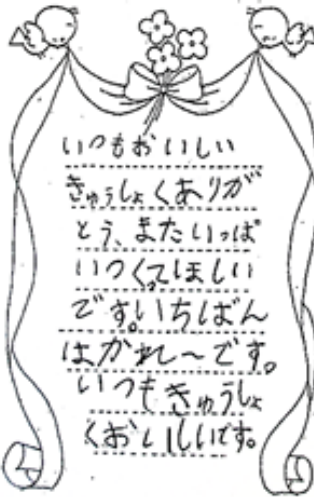 いつもおいしい
きゅうしょくありが
とう、またいっぱ
いつくってほしい
です。いちばん
はかれ〜です。
いつもきゅうしょ
くおいしいです。